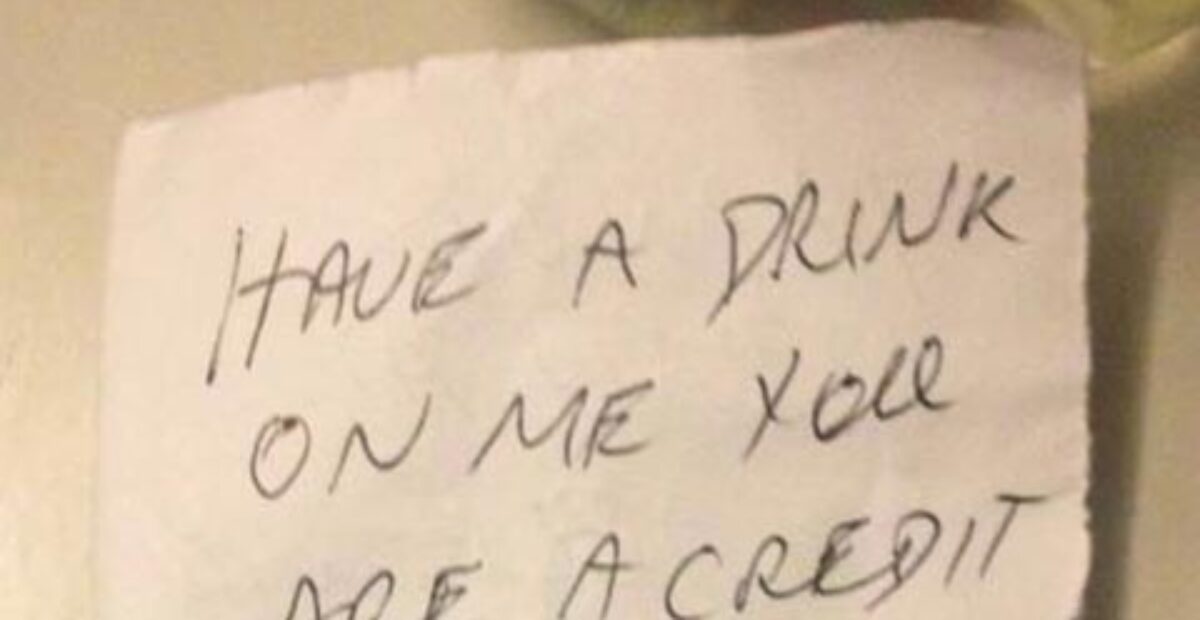 HAVE A DRINK
ON ME YOU
ARE A CREDIT